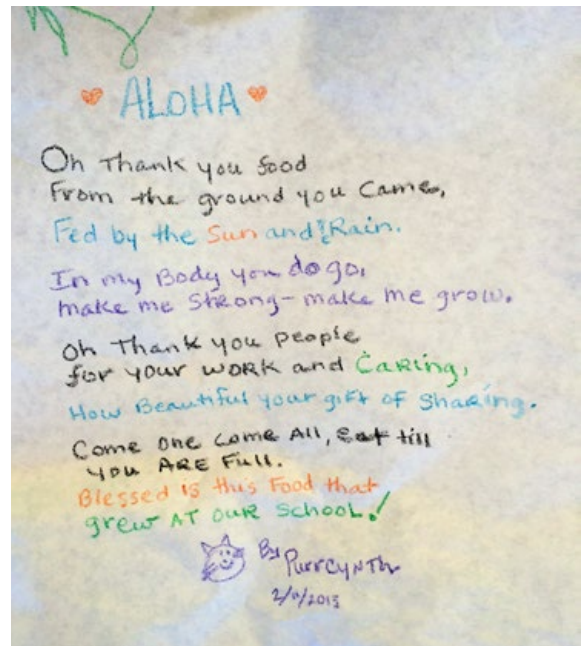 ALOHA
Oh Thank you food
From the ground you Came,
Fed by the Sun and Rain.
In my Body you do go,
make me Strong - make me grow.
Oh Thank you people
for your work and Caring,
How Beautiful your gift of Sharing.
Come one come All, Eat till
you ARE Full.
Blessed is this Food that
grew AT OUR School!
By
PurrcyNTh
2/11/2015